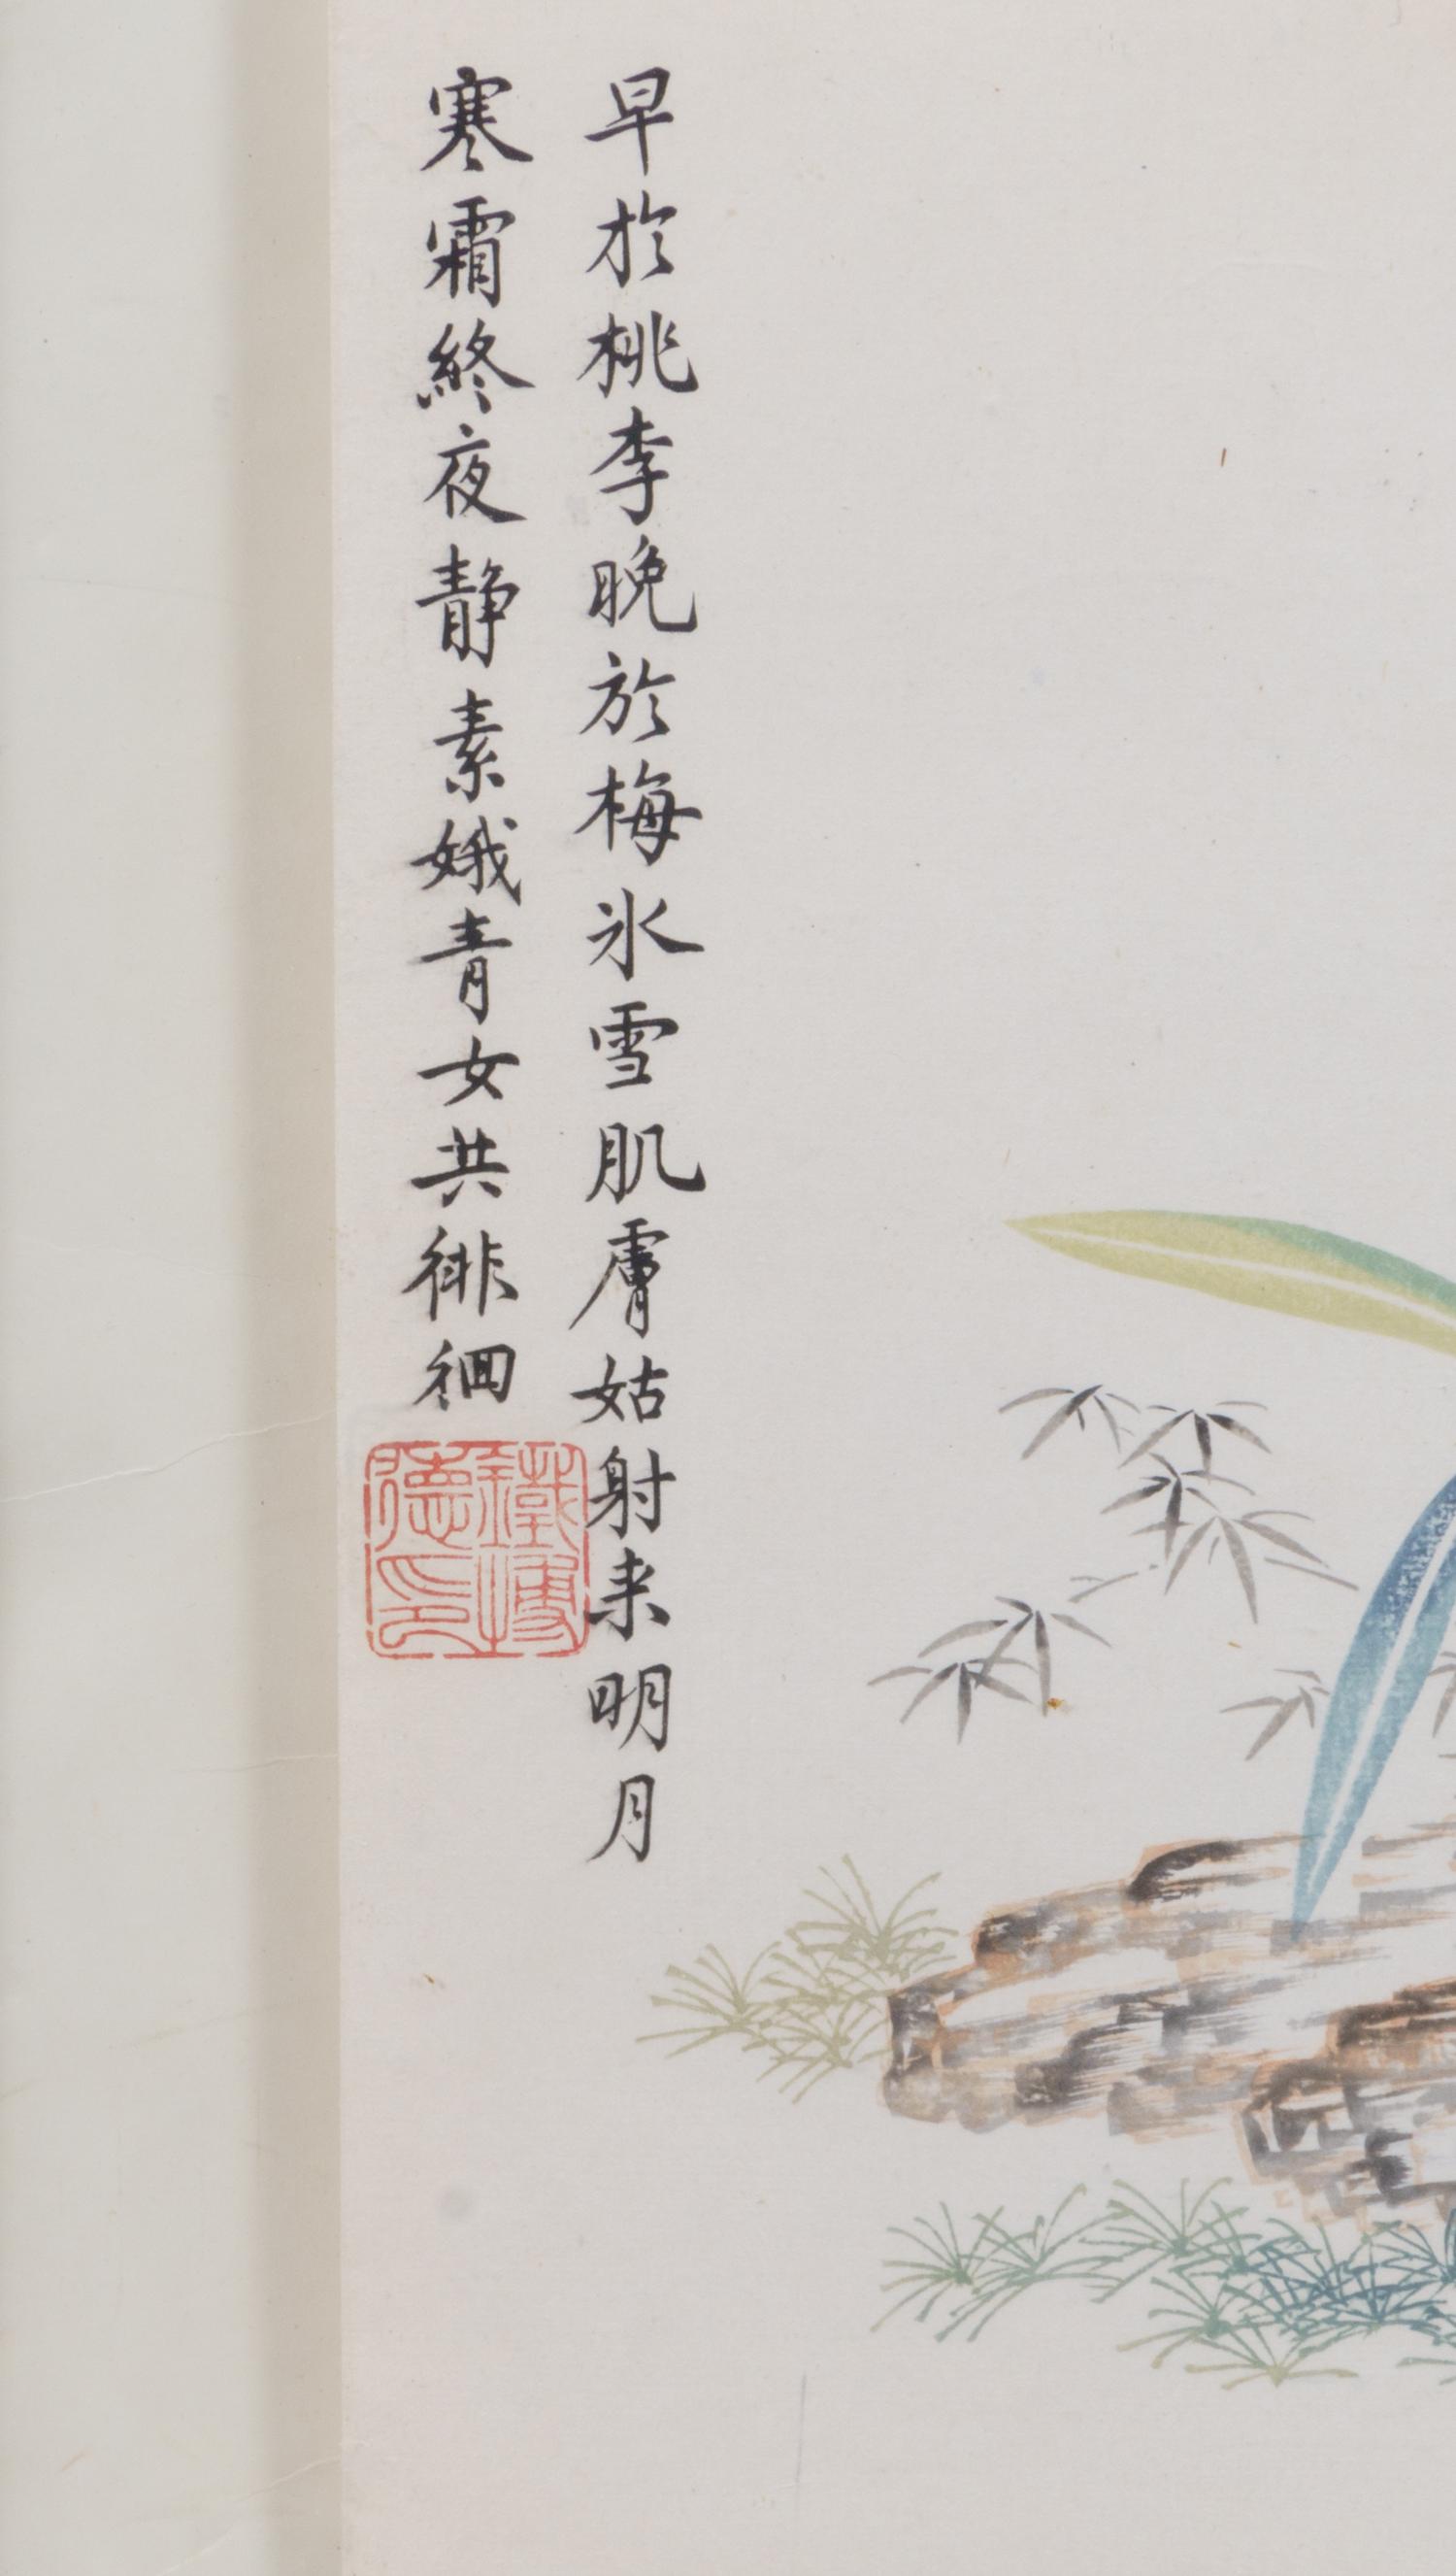 早於桃李晚於梅氷雪肌膚姑射来明月
寒霜終夜靜素娥青女共徘徊